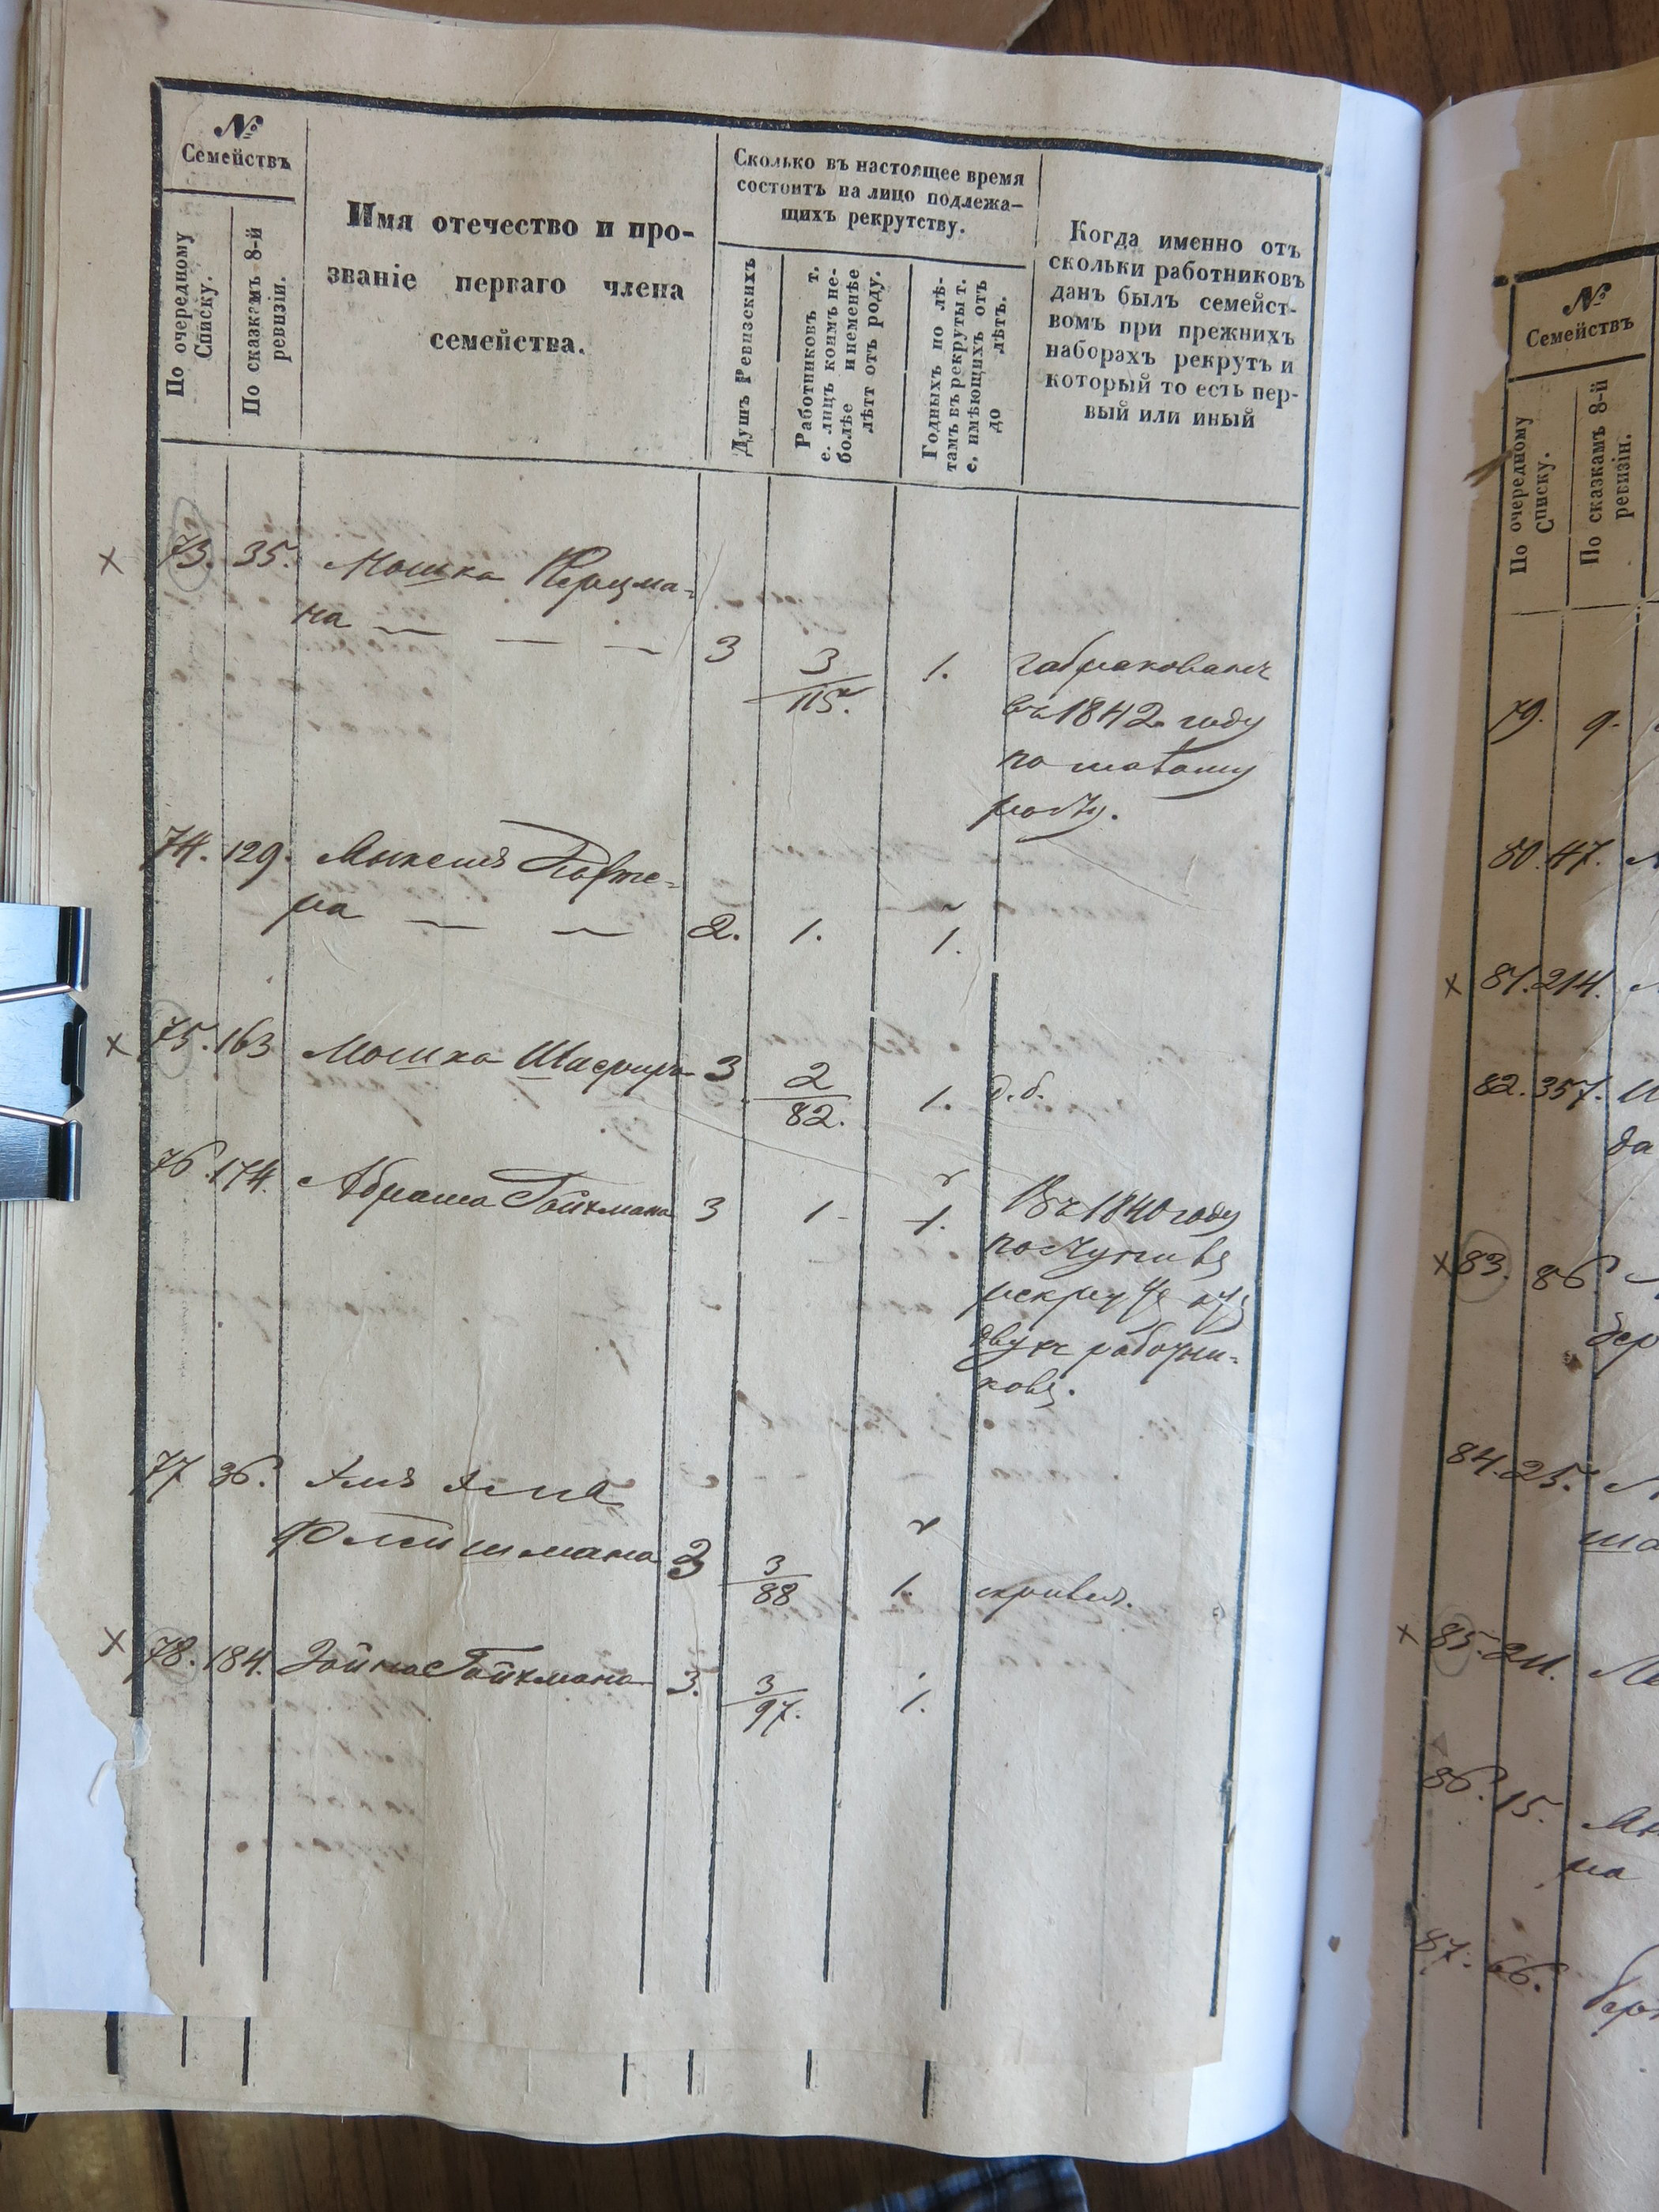 №
Семействъ
По очередному
Списку.
По сказкамъ 8-й
ревизіи.
Имя отечество и про-
званіе перваго члена
семейства.
Сколько въ настоящее время
состоитъ на лицо подлежа-
щихъ рекрутству.
Душъ Ревизскихъ
Работниковъ т.
е. лицъ коимъ не-
болѣе и неменѣе
лѣтт отъ роду.
Годныхъ по лѣ-
тамъ въ рекруты т.
с. имѣющихъ отъ
до лѣтъ.
Когда именно отъ
скольки работниковъ
данъ былъ семейст-
вомъ при прежнихъ
наборахъ рекрутъ и
который то есть пер-
вый или иный
х 73. 35. Мошка Керцма-
на — — — 3 3/115. 1. забракованъ
въ 1842 году
по малому
росту.
74. 129.
ра — — 2. 1. 1.
х 75. 163 Мошка Шафира 3 2/82. 1. д. б.
76. 174. Абрама Гойхмана 3 1 - 1. Въ 1840 году
поступивъ
рекрутъ изъ
двухъ работни-
ковъ.
77 36.
Флейшмана 3 3/88 1.
х 78. 184. Зойна Гойхмана 3. 3/97. 1.
№
Семействъ
По очередному
Списку.
По сказкамъ 8-й
ревизіи.
79. 9.
80. 47.
х 81. 214.
82. 357.
да
х 83. 86.
бер
84. 25.
ша
х 85. 211.
86. 15.
ра
87. 66.